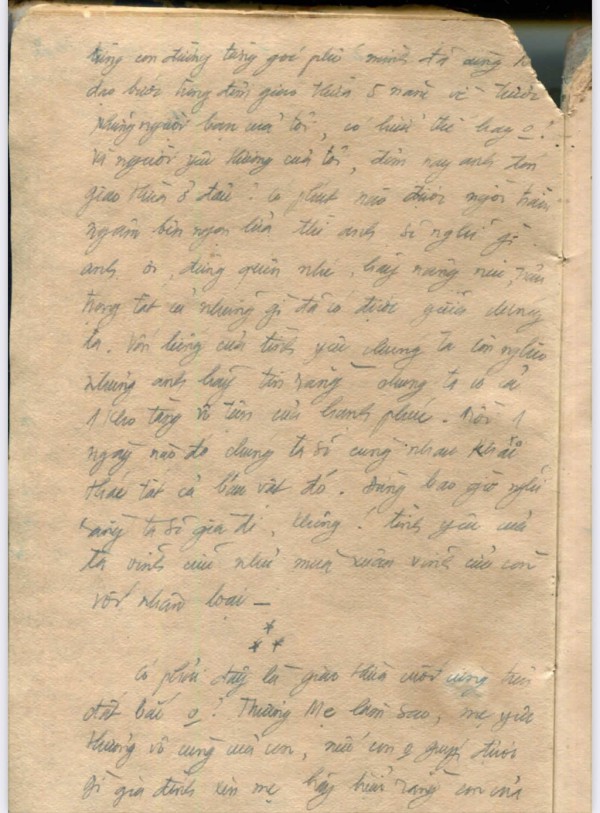 từng con đường từng góc phố mình đã cùng
dạo bước trong đêm giao thừa 5 năm về trước
Những người bạn của tôi, có hiểu thế hay o!
Và người yêu thương của tôi, đêm nay anh đón
giao thừa ở đâu? Có phút nào được ngồi trầm
ngâm bên ngọn lửa thì anh sẽ nghĩ gì
anh ơi, đừng quên nhé, hãy nâng niu, trân
trọng tất cả những gì đã có được giữa chúng
ta. Vốn liếng của tình yêu chúng ta còn nghèo
nhưng anh hãy tin rằng chúng ta có cả
1 kho tàng vô tận của hạnh phúc. Rồi 1
ngày nào đó chúng ta sẽ cùng nhau khai
thác tất cả báu vật đó. Đừng bao giờ nghĩ
rằng ta sẽ già đi. Không! tình yêu của
ta vĩnh cửu như mùa xuân vĩnh cửu còn
với nhân loại —
***
Có phải đây là giao thừa cuối cùng trên
đất bắc o? Thương Mẹ làm sao, mẹ yêu
thương vô cùng của con, nếu con o giúp được
gì gia đình xin mẹ hãy hiểu rằng con của